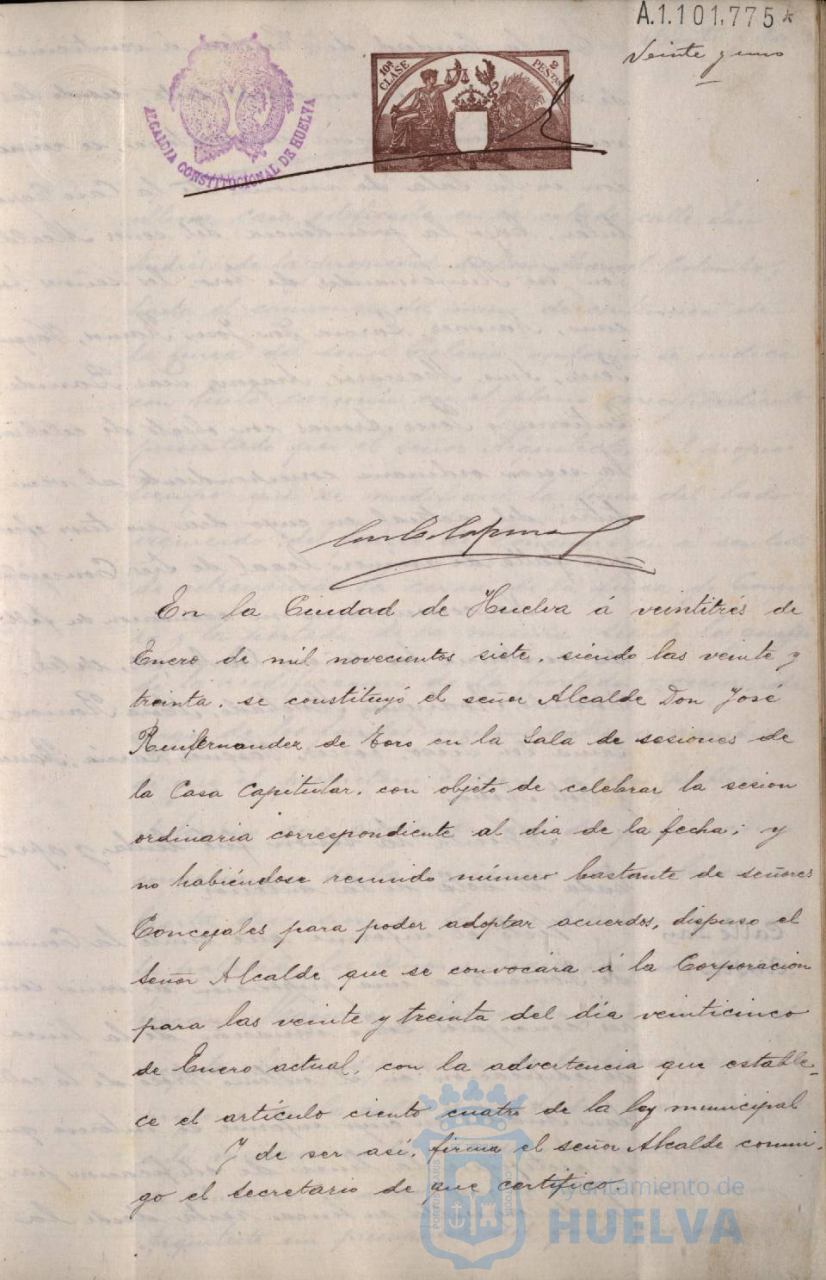 A.1.101,775*
Veinte y uno
10ª CLASE 2 PESETAS
ALCALDIA CONSTITUCIONAL DE HUELVA
En la Ciudad de Huelva á veintitrés de
Enero de mil novecientos siete, siendo las veinte y
treinta, se constituyó el señor Alcalde Don José
Renfernandez de Toro en la Sala de sesiones de
la Casa Capitular, con objeto de celebrar la sesion
ordinaria correspondiente al dia de la fecha; y
no habiéndose reunido número bastante de señores
Concejales para poder adoptar acuerdos, dispuso el
Señor Alcalde que se convocára á la Corporacion
para las veinte y treinta del día veinticinco
de Enero actual, con la advertencia que estable-
ce el artículo ciento cuatro de la ley municipal
Y de ser así, firma el señor Alcalde conmi-
go el Secretario de que certifico.
Ayuntamiento de
HUELVA